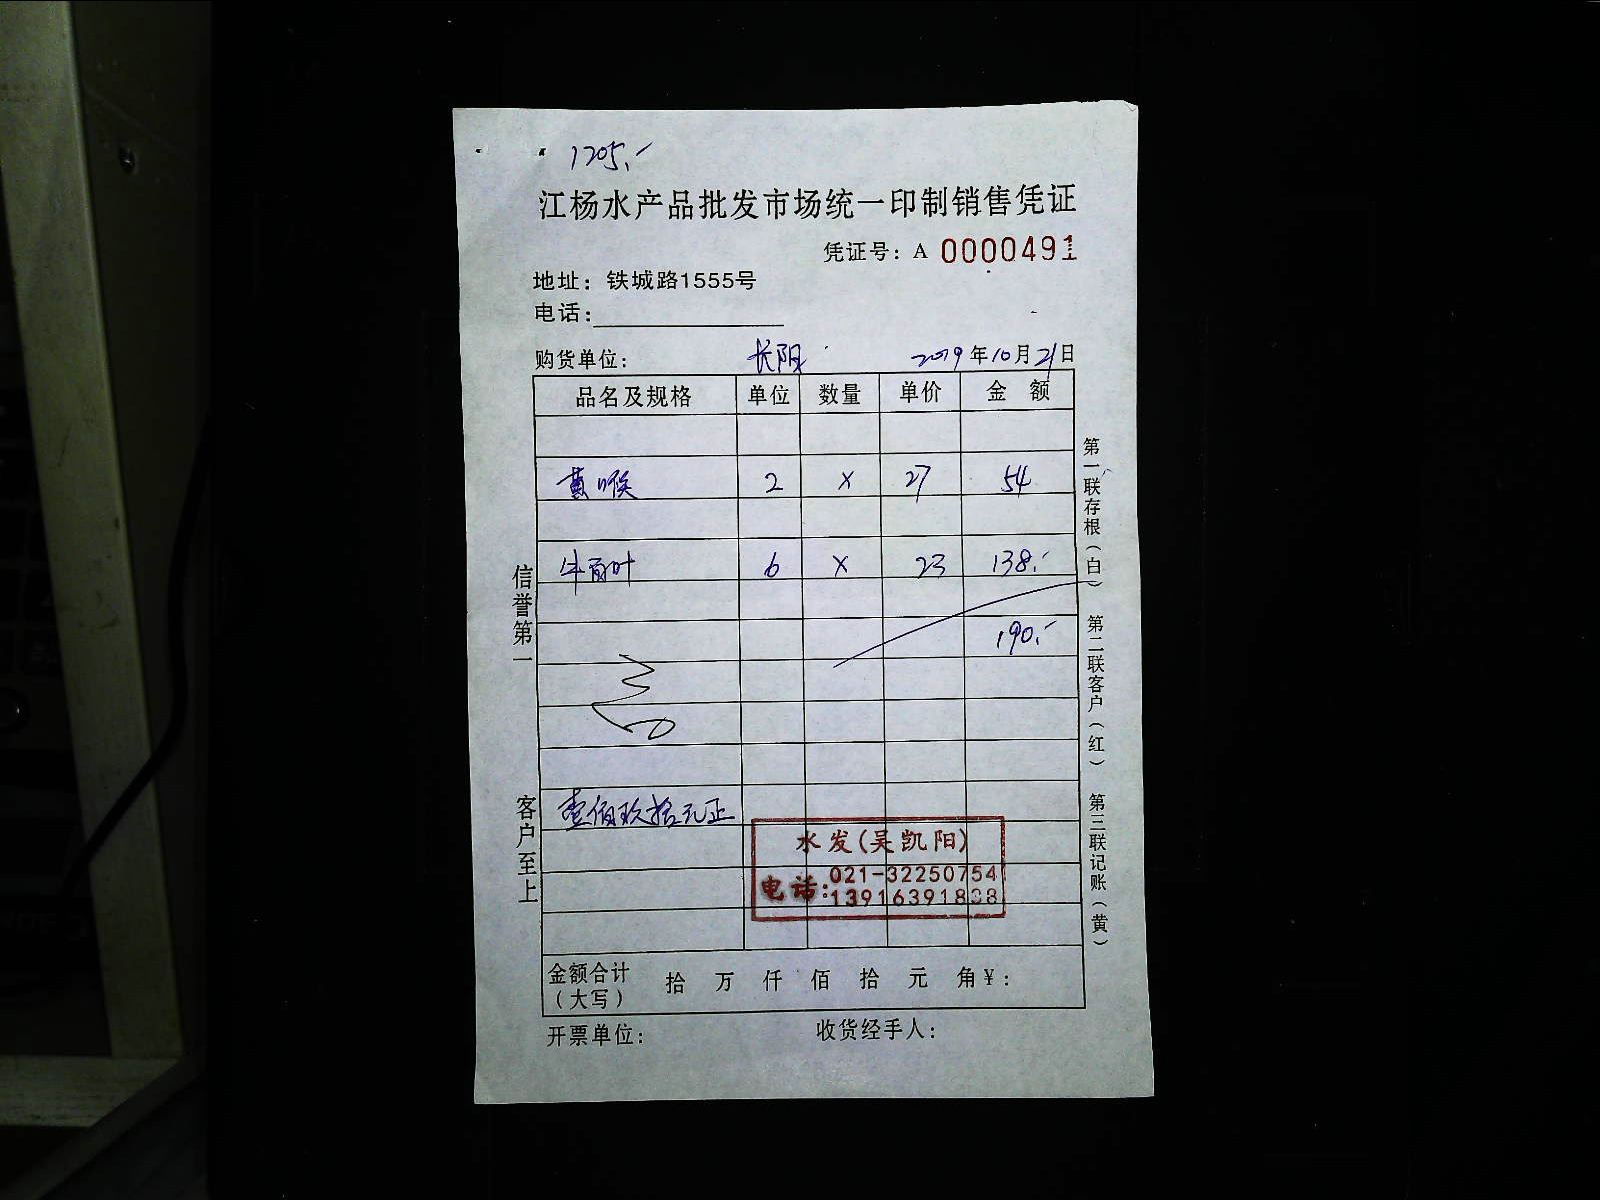 1205.-
江杨水产品批发市场统一印制销售凭证
凭证号：A 0000491
地址：铁城路1555号
电话：
购货单位： 长阳 2019年10月21日
品名及规格 单位 数量 单价 金 额
黄喉 2 X 27 54
牛百叶 6 X 23 138.-
190.-
壹佰玖拾元正
水发(吴凯阳)
电话:021-32250754
13916391838
金额合计（大写） 拾 万 仟 佰 拾 元 角￥：
开票单位： 收货经手人：
信誉第一
客户至上
第一联存根（白）
第二联客户（红）
第三联记账（黄）